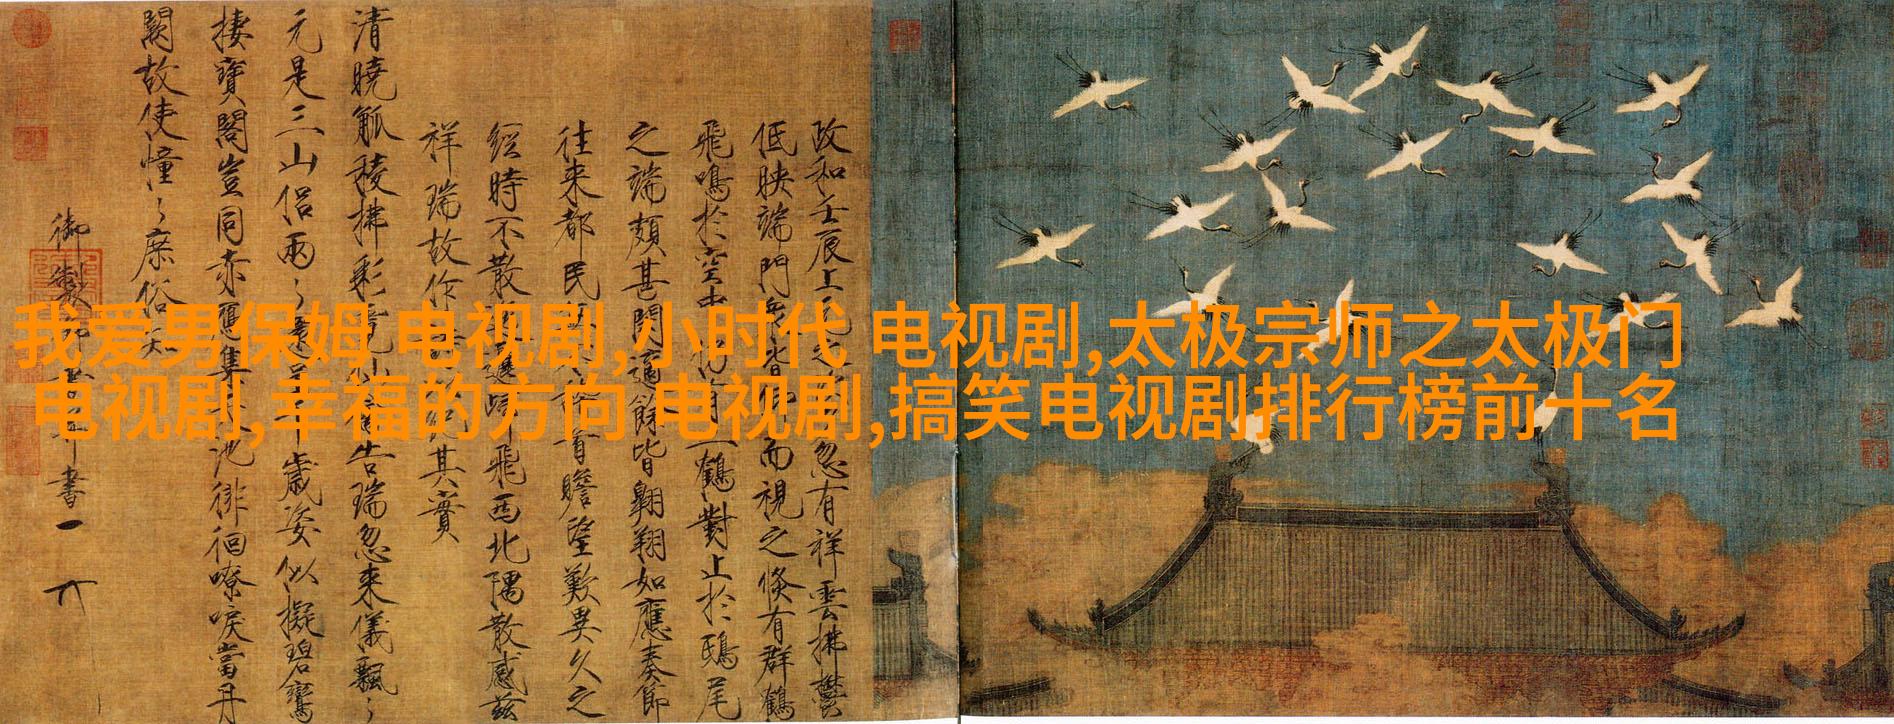 我爱男保姆 电视剧,小时代 电视剧,太极宗师之太极门
电视剧,幸福的方向 电视剧,搞笑电视剧排行榜前十名
政和壬辰上元之忽有祥雲拂鬱
低映端門皆仰而視之倏有群鶴
飛鳴於空中二鶴對止於鴟尾
之端頗甚閒適餘皆翱翔如應奏節
往來都民首瞻望歎異久之
經時不散邐歸飛西北隅散感茲
祥瑞故作紀其實
清曉觚稜拂彩霓仙告瑞忽來儀飄〻
元是三山侶兩〻還呈千歲姿似擬碧鸞
棲寶閣豈同赤鴈集天池徘徊嘹唳當丹
闕故使憧〻庶俗知
御製書